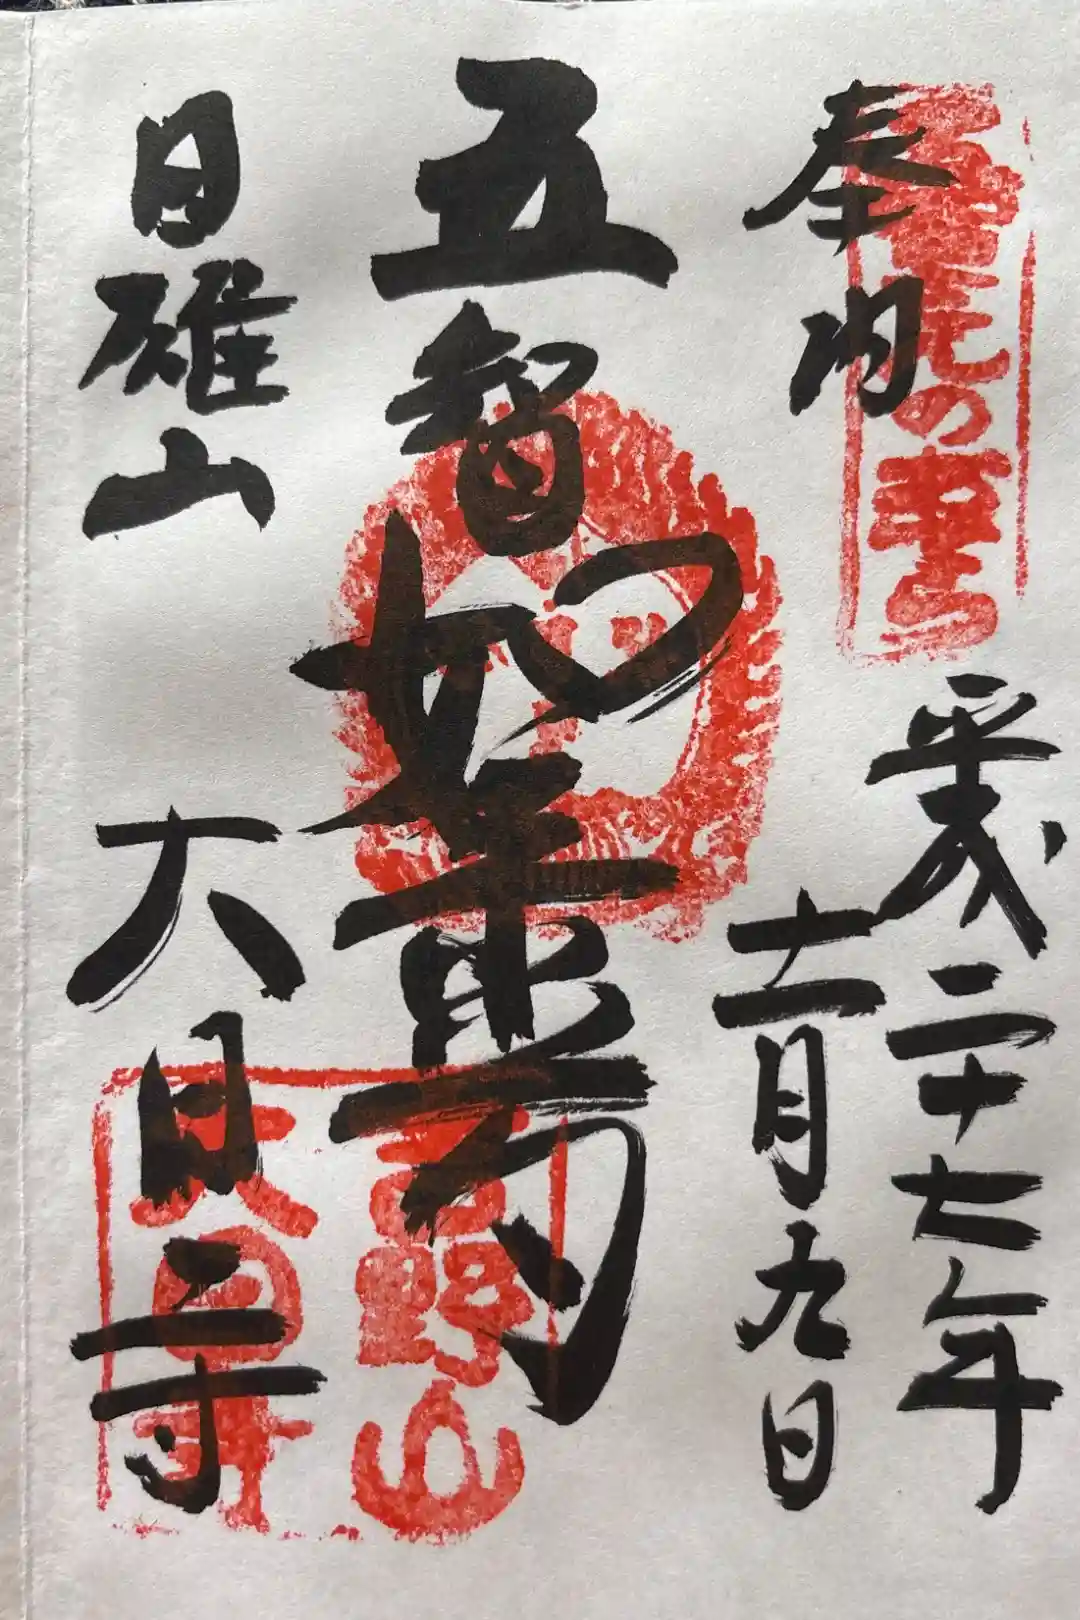 奉納
平成二十七年
十一月九日
五智如来
日雄山
大日寺
吉野山
大日寺